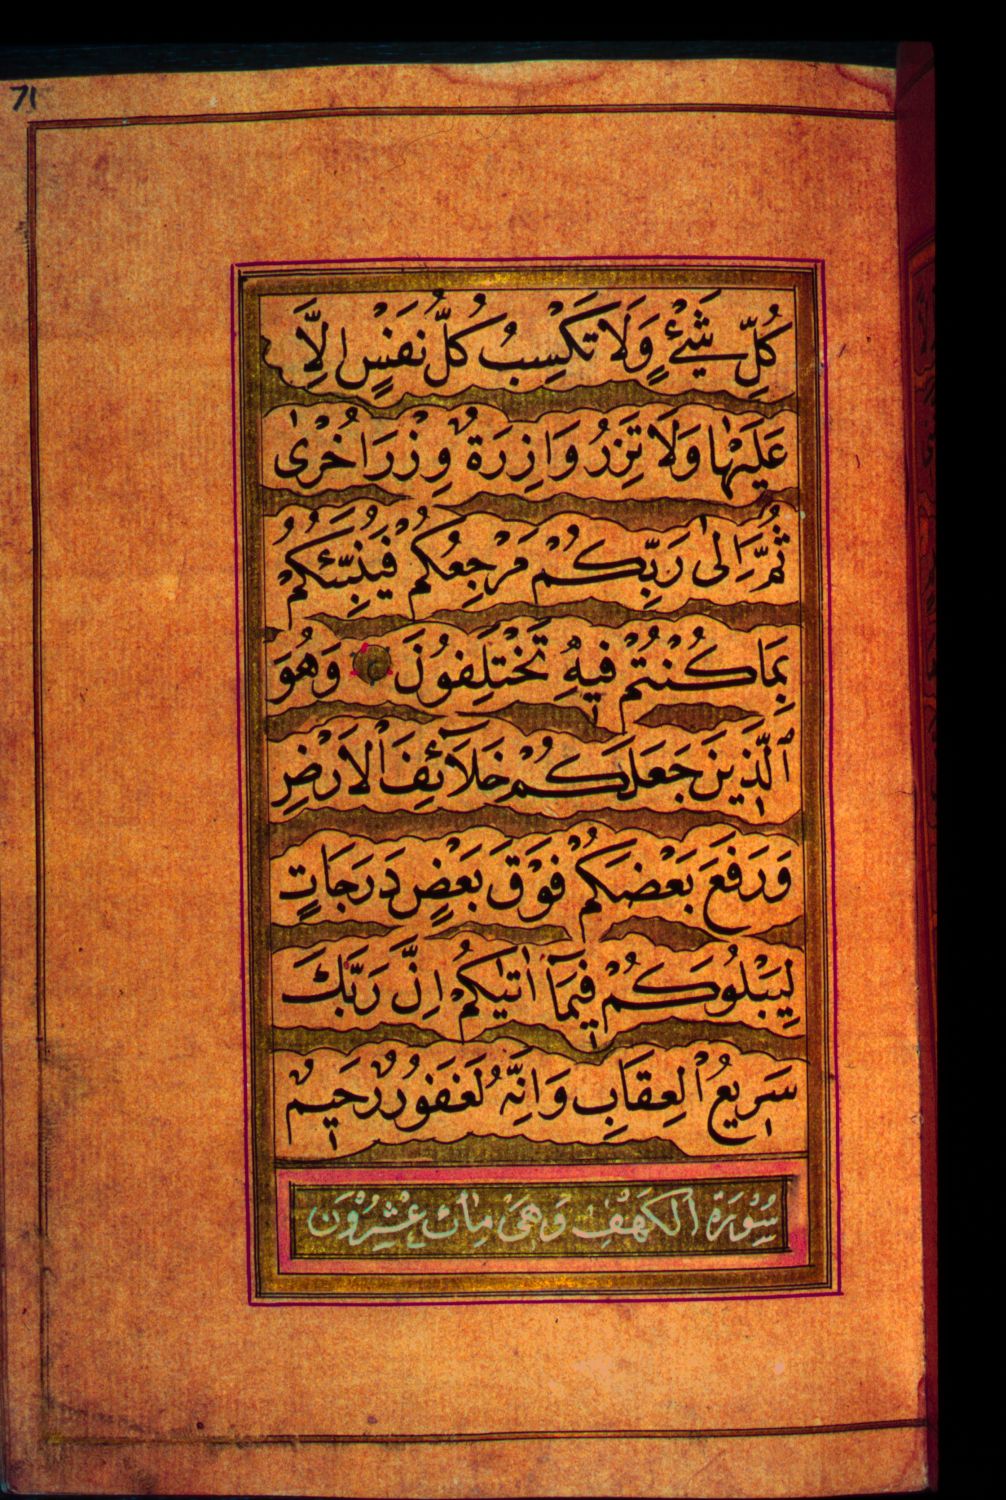 71
كُلِّ شَیْءٍ وَلَا تَكْسِبُ كُلُّ نَفْسٍ اِلَّا
عَلَيْهَا وَلَا تَزِرُ وَازِرَةٌ وِزْرَ اُخْرٰى
ثُمَّ اِلٰى رَبِّكُمْ مَرْجِعُكُمْ فَيُنَبِّئُكُمْ
بِمَا كُنْتُمْ فِيهِ تَخْتَلِفُونَ وَهُوَ
الَّذِينَ جَعَلَكُمْ خَلَآئِفَ الْاَرْضِ
وَرَفَعَ بَعْضَكُمْ فَوْقَ بَعْضٍ دَرَجَاتٍ
لِيَبْلُوَكُمْ فِيمَآ اٰتٰیكُمْ اِنَّ رَبَّكَ
سَرِيعُ الْعِقَابِ وَاِنَّهُ لَغَفُورٌ رَحِيمٌ
سُوْرَةُ الْكَهْفِ وَهِيَ مائة عِشْرُوْنَ